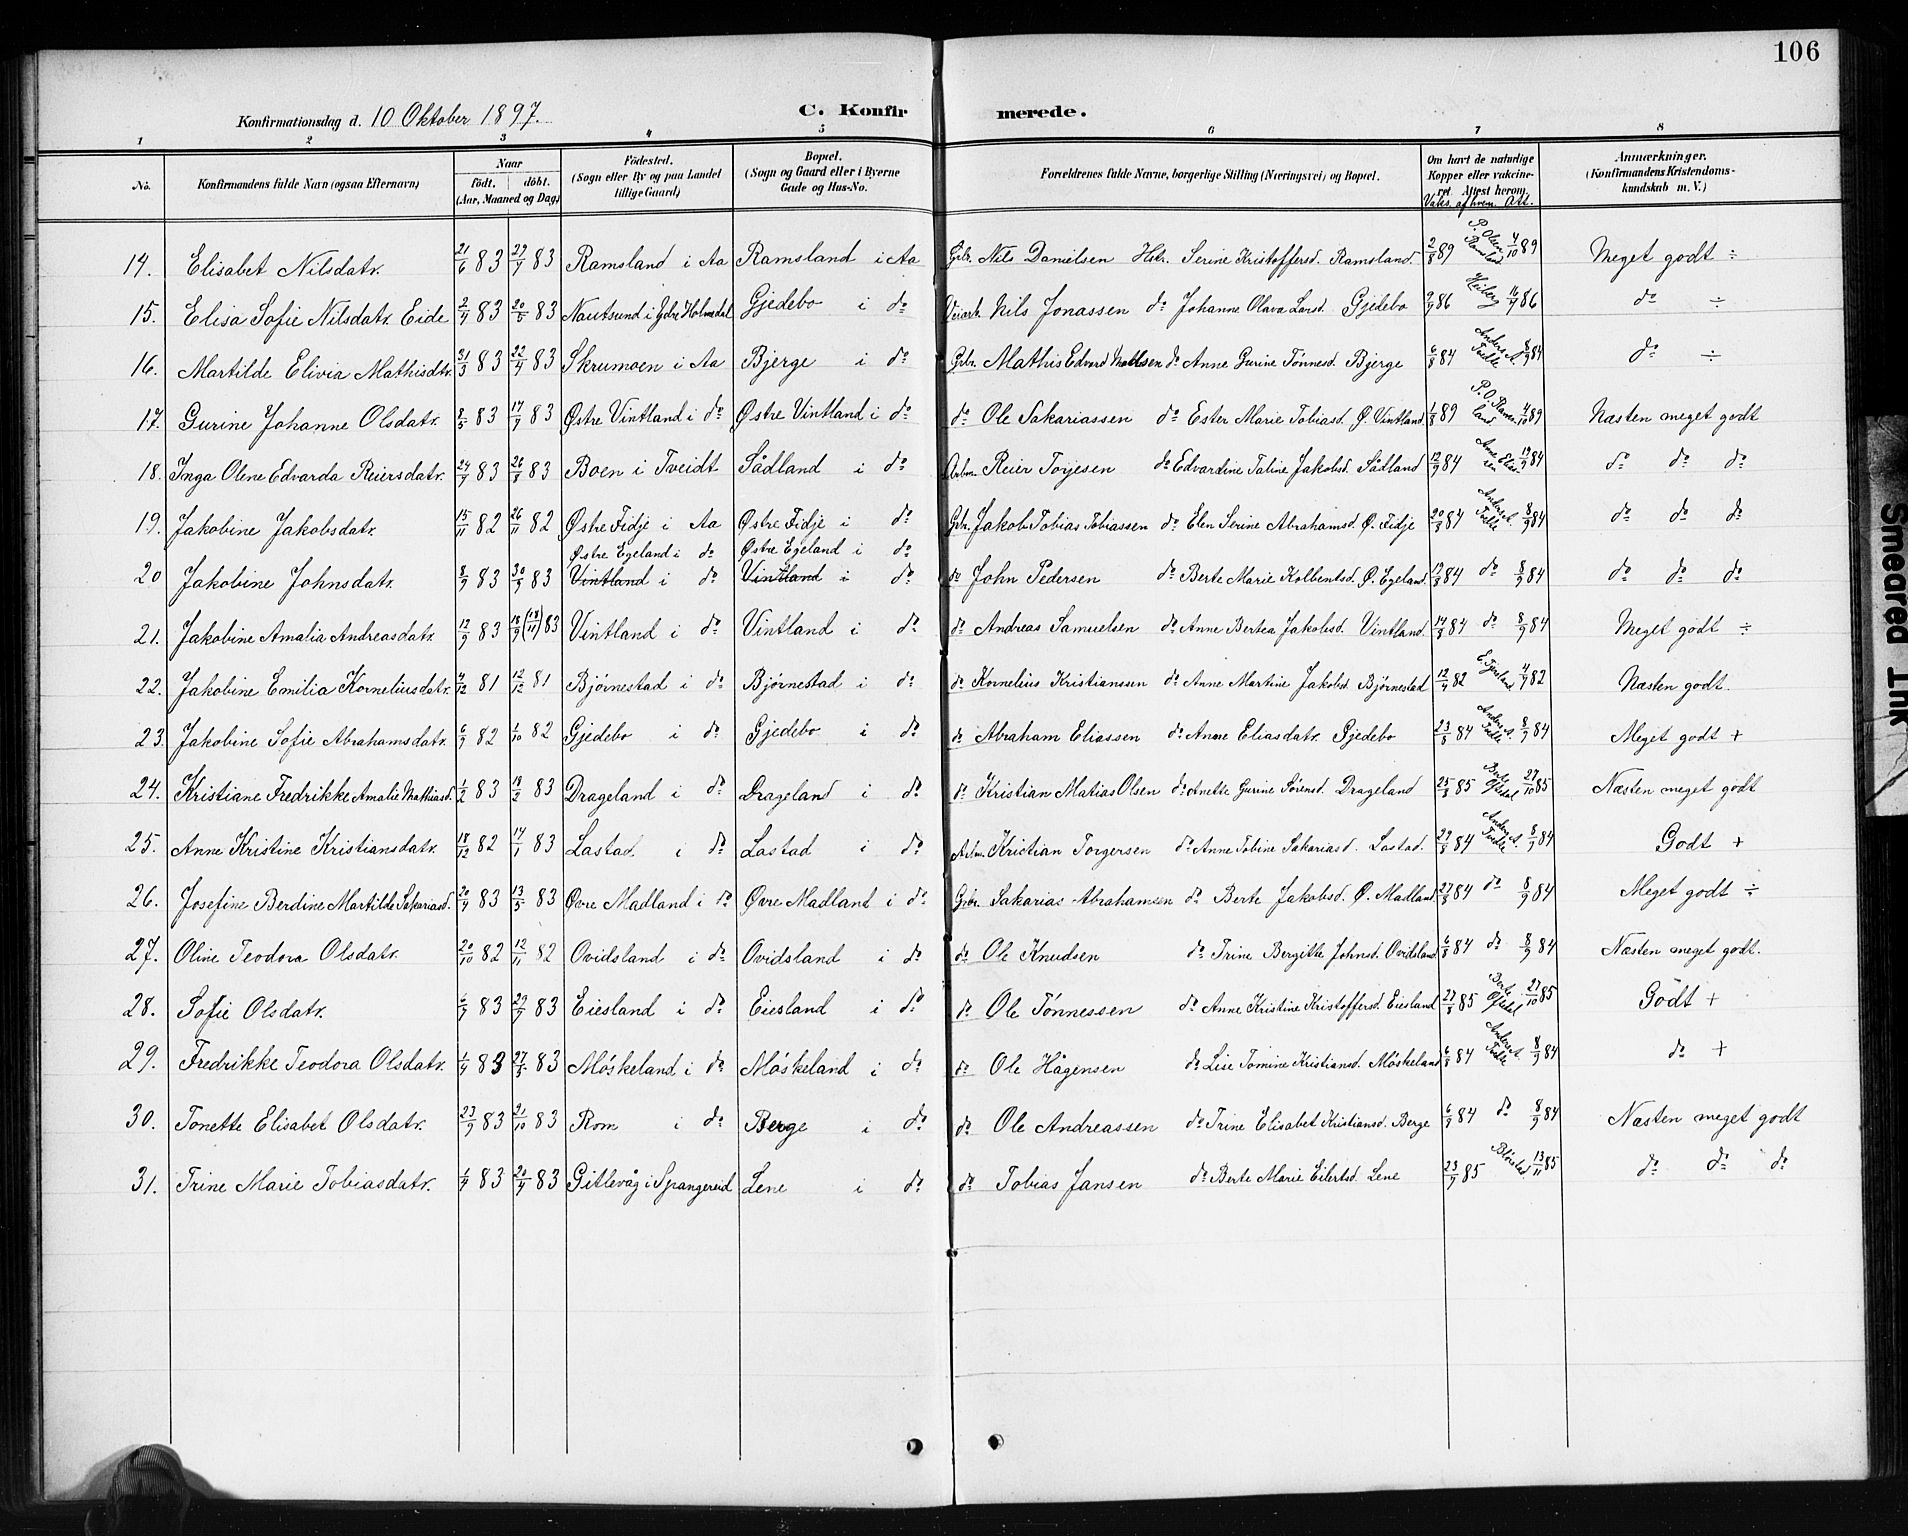 106
Konfirmationsdag d. 10 Oktober 1897. C. Konfirmerede.
1 2 3 4 5 6 7 8
No. Konfirmandens fulde Navn (ogsaa Efternavn) Naar født, døbt. (Aar, Maaned og Dag) Fødested. (Sogn eller By og paa Landet tillige Gaard) Bopæl. (Sogn og Gaard eller i Byerne Gade og Hus-No. Forældrenes fulde Navne, borgerlige Stilling (Næringsvei) og Bopæl. Om havt de naturlige Kopper eller vakcineret. Attest herom. Vaks. af hvem. Att. Anmærkninger. (Konfirmandens Kristendomskundskab m. V.)
14. Elisabet Nilsdatr. 21/6 83 29/7 83 Ramsland i Aa Ramsland i Aa Gbr. Nils Danielsen Hstr. Serine Kristoffersd. Ramsland. 2/8 89 P. Olsen Ramsland 4/10 89 Meget godt ÷
15. Elisa Sofie Nilsdatr. Eide 2/4 83 20/5 83 Nautsund i Ydre Holmedal Gjedebo i do Veiarb. Nils Jonassen do Johanne Olava Larsd. Gjedebo 9/9 86 Heiberg 16/9 86 do ÷
16. Martilde Elivia Mathisdtr. 31/3 83 22/4 83 Skrumoen i Aa Bjerge i do Gbr. Mathis Edvard Mathisen do Anne Gurine Tønnesd. Bjerge 6/8 84 Anders A. Tredte 8/9 84 do ÷
17. Gurine Johanne Olsdatr. 8/5 83 17/9 83 Østre Vintland i do Østre Vintland i do do Ole Sakariassen do Ester Marie Tobiasd. Ø. Vintland 1/8 89 P. O. Ramsland 4/10 89 Næsten meget godt
18. Inga Olene Edvarda Reiersdatr. 24/7 83 26/8 83 Boen i Tveidt Sådland i do Arbm. Reier Torjesen do Edvardine Taline Jakobsd. Sådland 12/9 84 19/9 84 do do do
19. Jakobine Jakobsdatr. 15/11 82 26/11 82 Østre Fidje i Aa Østre Fidje i do Gbr. Jakob Tobias Tobiassen do Elen Serine Abrahamsd. Ø. Fidje 20/8 84 Anders A. Tredte 8/9 84 do do do
Østre Egeland i do Østre Egeland i do
20 Jakobine Johnsdatr. 8/9 83 30/9 83 Vintland i do Vintland i do do John Pedersen do Berte Marie Kolbentsd. Ø. Egeland. 19/8 84 do 8/9 84 do do do
21. Jakobine Amalia Andreasdatr. 12/9 83 18/9 (18/11) 83 Vintland i do Vintland i do do Andreas Samuelsen do Anne Bertea Jakobsd. Vintland. 14/8 84 do 8/9 84 Meget godt ÷
22. Jakobine Emilia Korneliusdatr. 4/12 81 12/12 81 Bjørnestad i do Bjørnestad i do do Kornelius Kristianssen do Anne Martine Jakobsd. Bjørnestad 12/9 82 4/9 82 Næsten godt.
23. Jakobine Sofie Abrahamsdatr. 6/9 82 1/10 82 Gjedebo i do Gjedebo i do do Abraham Eliassen do Anne Eliasdatr. Gjedebo 23/8 84 Anders A. Tredte 8/9 84 Meget godt +
24. Kristiane Fredrikke Amalie Mathiasd. 1/2 83 18/2 83 Drageland i do Drageland i do do Kristian Matias Olsen do Anette Gurine Sørensd. Drageland 25/8 85 27/10 85 Næsten meget godt
25. Anne Kristine Kristiansdatr. 18/12 82 14/1 83 Lastad. i do Lastad i do Arbm. Kristian Torgersen do Anne Tobine Sakariasd. Lastad. 22/8 84 Anders A. Tredte 8/9 84 Godt +
26. Josefine Berdine Martilde Sakariasd. 20/4 83 13/5 83 Øvre Madland i do Øvre Madland i do Gbr. Sakarias Abrahamsen do Berte Jakobsd. Ø. Madland 27/8 84 do 8/9 84 Meget godt ÷
27. Oline Teodora Olsdatr. 20/10 82 12/11 82 Ovidsland i do Ovidsland i do do Ole Knudsen do Trine Bergitte Johnsd. Ovidsland 6/8 84 do 8/9 84 Næsten meget godt.
28. Sofie Olsdatr. 6/7 83 29/7 83 Eiesland i do Eiesland i do do Ole Tønnessen do Anne Kristine Kristoffersd. Eiesland 27/8 85 27/10 85 Godt +
29. Fredrikke Teodora Olsdatr. 1/4 83 27/5 83 Møskeland i do Møskeland i do do Ole Hågensen do Lise Tomine Kristiansd. Møskeland 6/8 84 Anders A. Tredte 8/9 84 do +
30. Tonette Elisabet Olsdatr. 23/9 83 21/10 83 Rom i do Berge i do do Ole Andreassen do Trine Elisabet Kristiansd. Berge 6/9 84 do 8/9 84 Næsten meget godt
31. Trine Marie Tobiasdatr. 1/4 83 20/4 83 Gitlevåg i Spangereid Lene i do do Tobias Jansen do Berte Marie Eilertsd. Lene 23/9 85 13/11 85 do do do
Smeared Ink